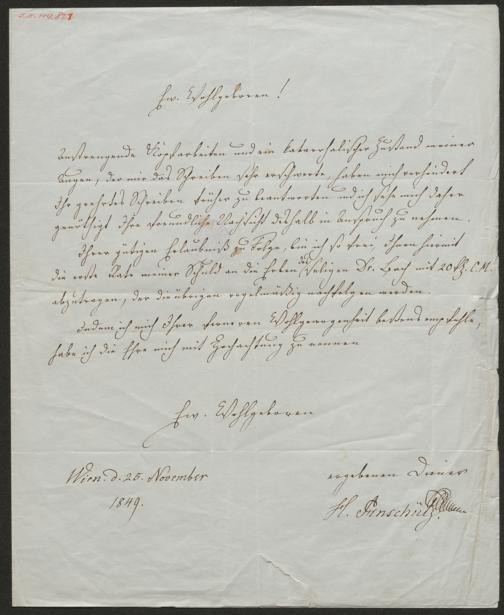 Ew. Wohlgeboren!
Anstrengende Kopfarbeiten und ein katarrhalischer Zustand meiner
Augen, der mir das Schreiben sehr erschwerte, haben mich verhindert
Ihr geehrtes Schreiben früher zu beantworten und ich sehe mich daher
genöthigt Ihre freundliche Nachsicht deshalb in Anspruch zu nehmen.
Ihrer gütigen Erlaubniß zu Folge, bin ich so frei, Ihnen hiermit
die erste Rate meiner Schuld an die Erben des seligen Dr. mit 20 fl. C.M.
abzutragen, der die übrigen regelmäßig nachfolgen werden.
Indem ich mich Ihrer ferneren Wohlgewogenheit bestens empfehle,
habe ich die Ehre mich mit Hochachtung zu nennen
Ew. Wohlgeboren
Wien d. 25. November
ergebenen Diener
1849.
H.